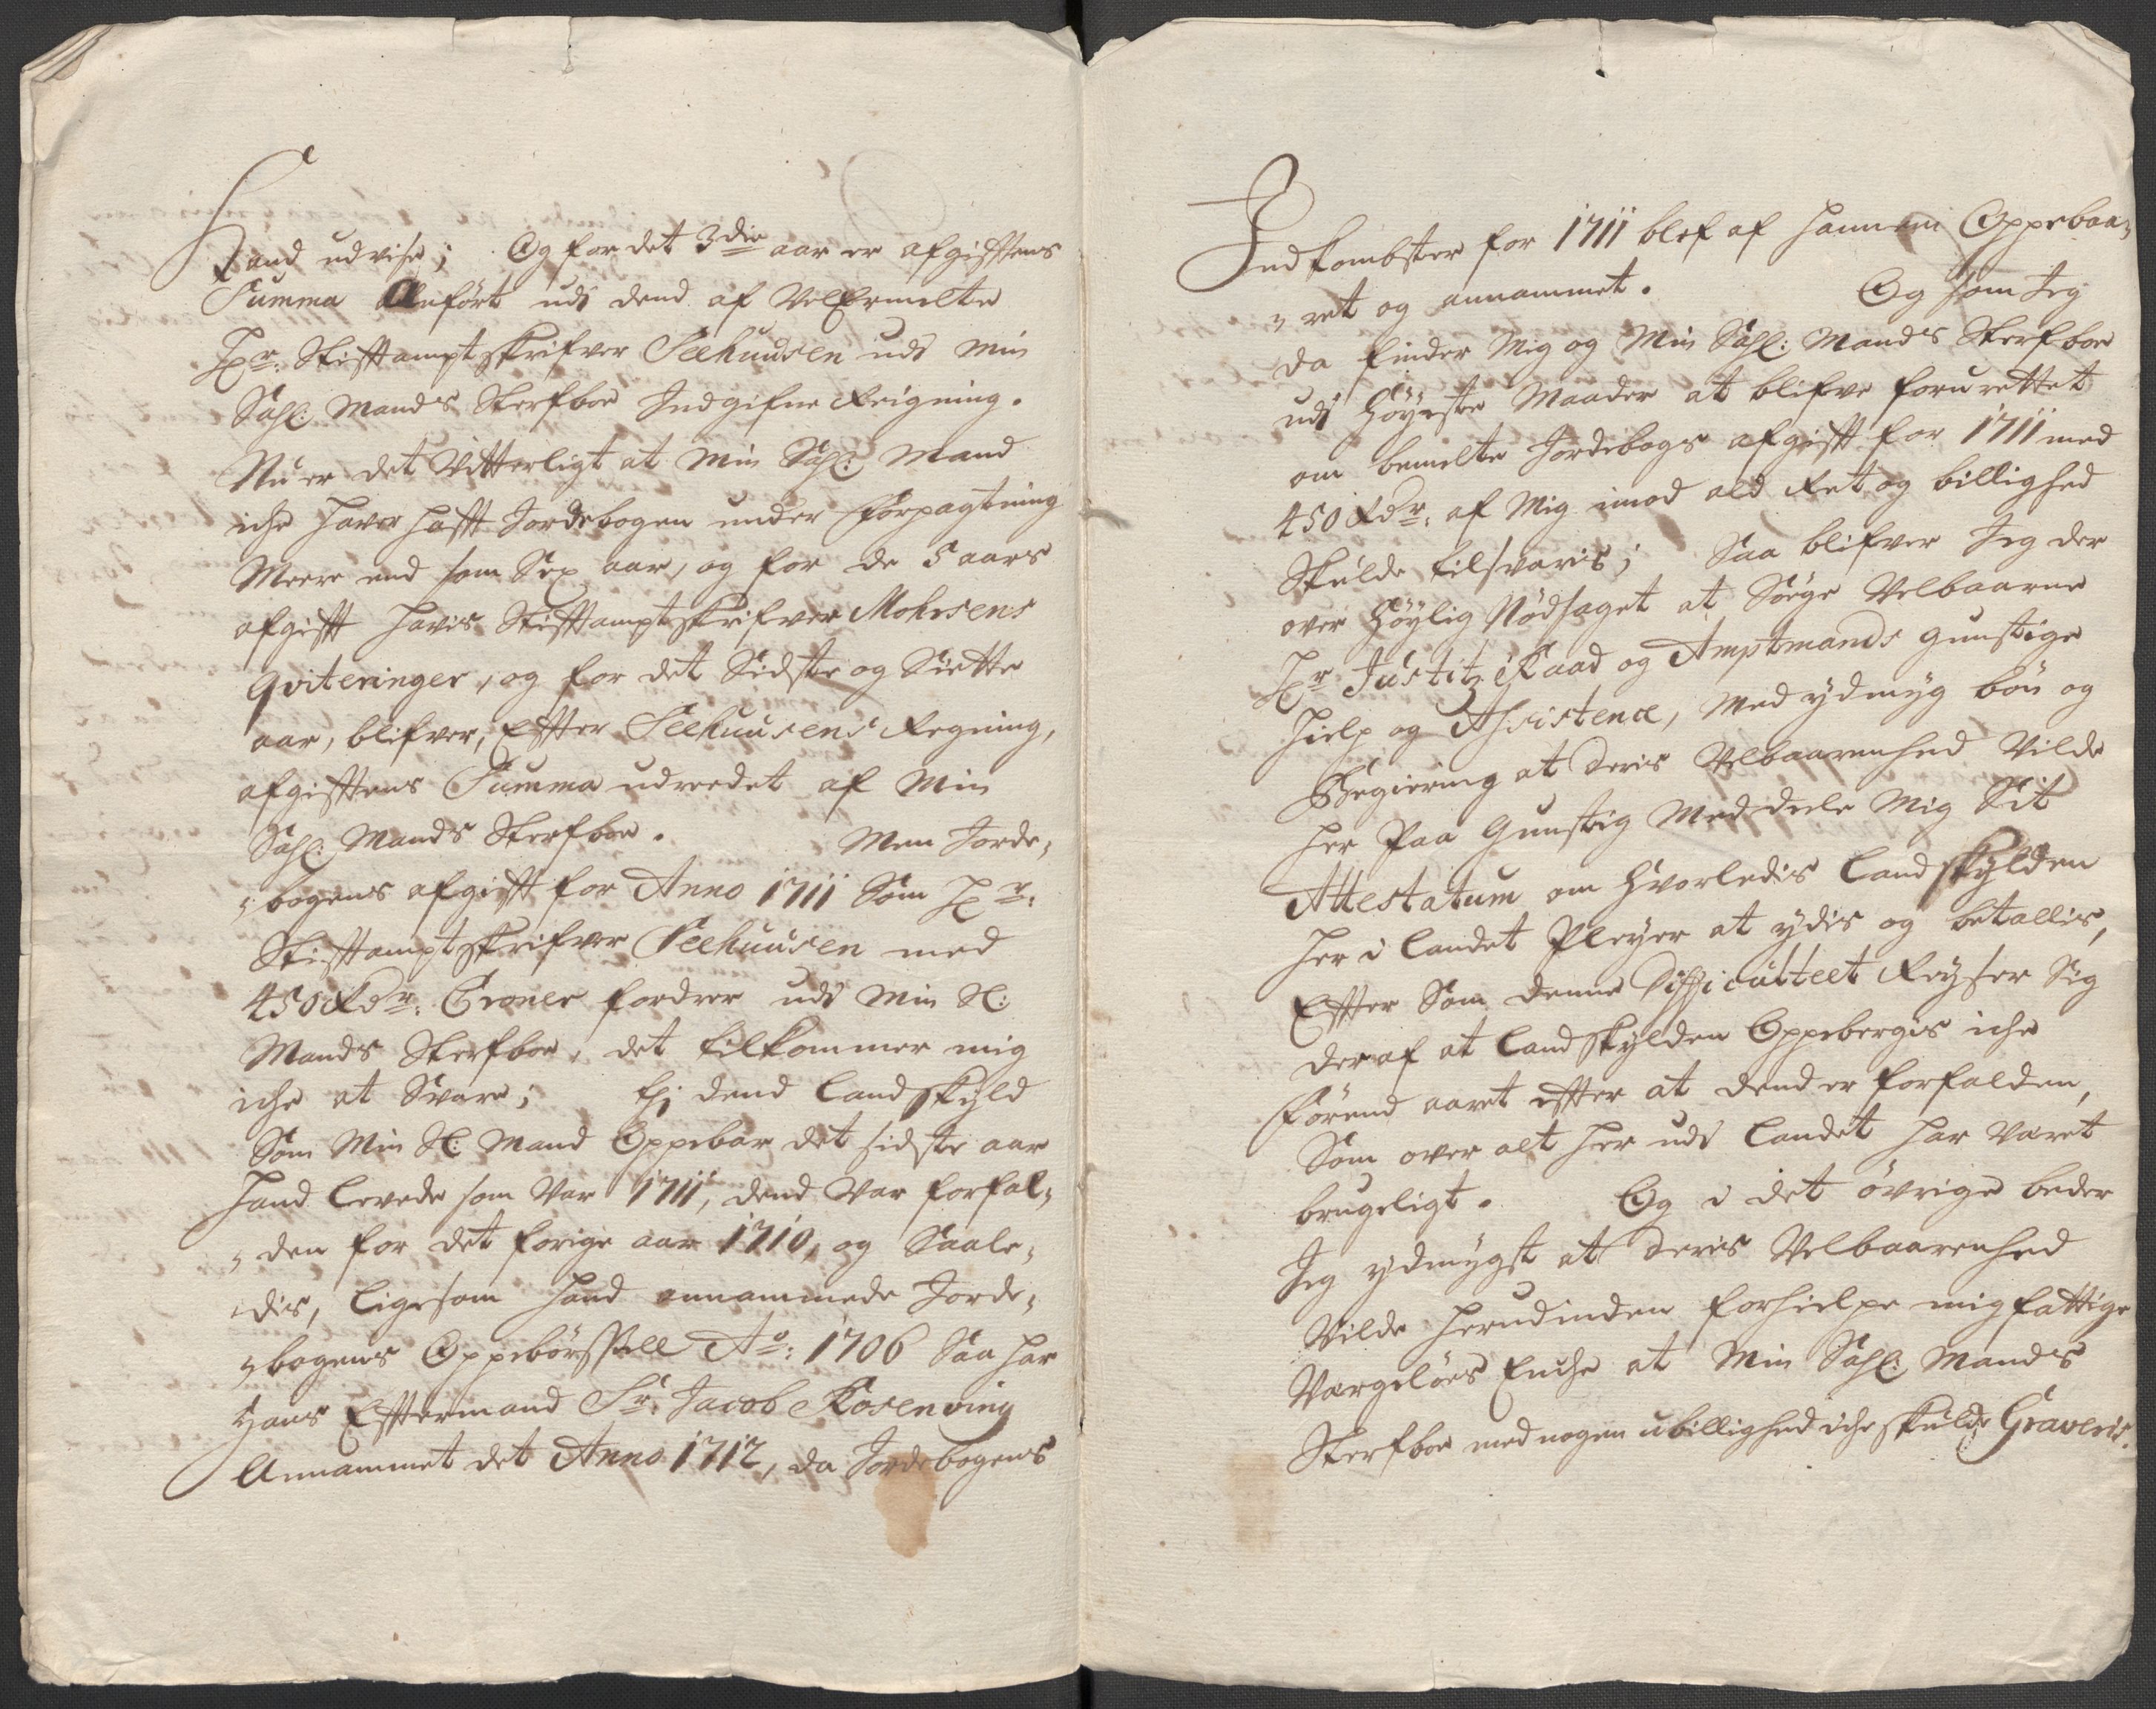 Haand udviser; Og for det 3die aar er afgifftens
Summa Anført udi dend af Velbemelte
Hr: Stifftamptskrifver Seehuusen udi min
Sahl: Mands Sterfboe Indgifne Reigning.
Nu er det Vitterligt at min Sahl: Mand
iche haver hafft Jordebogen under Forpagtning
Meere end som Sex aar, og for de 5 aars
afgifft havis Stifftamptskrifver Mohrsens
Qviteringer, og for det Sidste og Siette
aar, blifver, Effter Seehuusens Regning,
afgifftens Summa udreedet af Min
Sahl: Mands Sterfboe. Men Jorde-
bogens afgifft for Anno 1711 Som Hr:
Stifftamptskrifver Seehuusen med
450 Rdr: Croner fordrer udi Min Sl:
Mands Sterfboe, det tilkommer mig
iche at Svare; thi dend Landskyld
Som Min Sl: Mand Oppebar det sidste aar
hand levede som Var 1711, dend Var forfal-
den for det forige aar 1710, og Saale-
dis, ligesom hand annammede Jorde-
bogens Oppebørssell Ao: 1706 Saa har
Hans Efftermand Sr: Jacob Rosenving
Annammet det Anno 1712, da Jordebogens
Indkombster for 1711 blef af hannem Oppebaa-
ret og annammet. Og som Jeg
da finder Mig og Min Sahl: Mands Sterfboe
udi Høyeste Maader at blifve foruretted
om bemelte Jordebogs afgifft for 1711 med
450 Rdr: af Mig imod ald Ret og billighed
Skulde tilsvaris; Saa blifver Jeg der
over Høylig Nødsaget at Søge Velbaarne
Hr Justitz Raad og Amptmands gunstige
Hielp og Assistence, Med ydmyg bøn og
Begiering at Deris Velbaarenhed Vilde
her paa Gunstig Meddeele Mig Sit
Attestatum om Hvorledis Landskylden
her i Landet Pleyer at ydis og betallis,
Effter Som denne Difficulteet Reyser Sig
deraf at Landskylden Oppebergis iche
førend aaret effter at dend er forfalden,
Som over alt her udi Landet har Været
brugeligt. Og i det øvrige beder
Jeg ydmygst at Deris Velbaarenhed
Vilde herudinden forhielpe mig fattige
Værgeløes Enche at Min Sahl: Mands
Sterfboe med nogen ubillighed iche skulde Graveris.